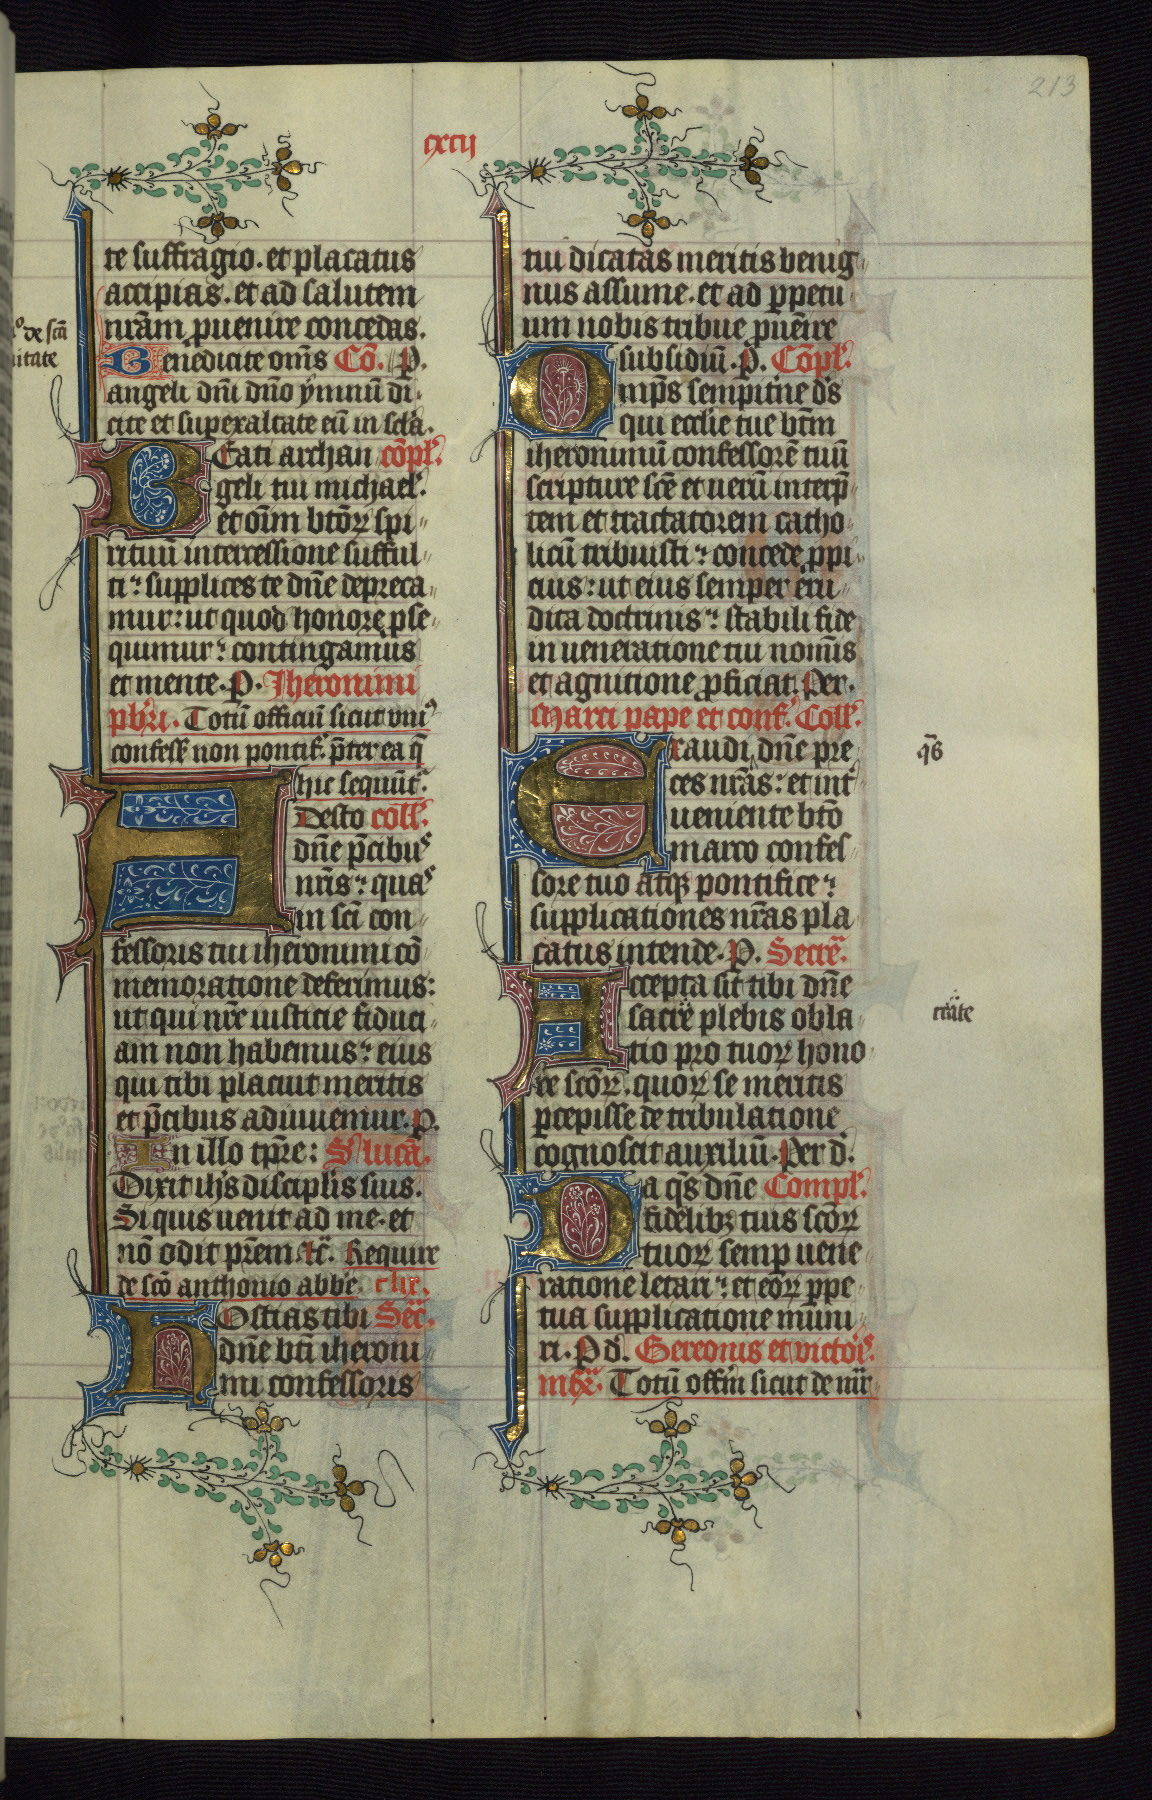 213
cxcij
te suffragio. et placatus
accipias. et ad salutem
nr̄am ꝓuenire concedas.
Benedicite om̄s Cō. P.
angeli dn̄i dn̄o ẏmnū di
cite et supexaltate eū in sc̄la.
Beati archan cōpl'.
geli tui michael'.
et om̄m bt̄oꝝ spi
rituū intercessione sufful
ti: supplices te dn̄e depreca
mur: ut quod honore ꝓse
quimur: contingamus
et mente. P. Iheronimi
pbr̄i. Totū officiū sicut vniꝰ
confess' non pontif. p̄ter ea q̄
hic sequūt'.
Adesto coll'.
dn̄e p̄cibuꝰ
nr̄is: quaꝰ
in sc̄i con
fessoris tui iheronimi cō
memoratione deferimus:
ut qui nr̄e iusticie fiduci
am non habemus: eius
qui tibi placuit meritis
et p̄cibus adiuuemur. P.
In illo tp̄re: S' lucā.
Dixit ih̄s disciplis suis.
Si quis uenit ad me. et
nō odit pr̄em. ⁊c̄. Require
de sc̄o anthonio abb̄e. clix.
Hostias tibi Sec̄.
dn̄e bt̄i iheroni
mi confessoris
tui dicatas meritis benig
nus assume. et ad ꝑpetu
um nobis tribue ꝓuēire
subsidiū. P. Cōpl'.
Omps̄ sempit̄ne ds̄
qui ecclīe tue bt̄m
iheronimū confessorē tuū
scripture sc̄e et uerū interp̄
tem et tractatorem catho
licū tribuisti: concede ꝓpi
cius: ut eius semper eru
dita doctrinis: stabili fide
in ueneratione tui nom̄is
et agnitione ꝓficiat. Per.
Marci pape et conf. Coll'.
Exaudi dn̄e pre
ces nr̄as: et int̄
ueniente bt̄o
marco confes
sore tuo atqꝫ pontifice:
supplicationes nr̄as pla
catus intende. P. Secr̄e.
Accepta sit tibi dn̄e
sacr̄e plebis obla
tio pro tuoꝝ hono
re sc̄oꝝ. quoꝝ se meritis
ꝑcepisse de tribulatione
cognoscit auxiliū. Per d.
Da qs̄ dn̄e Compl'.
fidelibꝫ tuis sc̄oꝝ
tuoꝝ semp uene
ratione letari: et eoꝝ ꝑpe
tua supplicatione muni
ri. P d. Gereonis et victor̄.
mr̄. Totū offm̄ sicut de iiii
de sc̄a
nitate